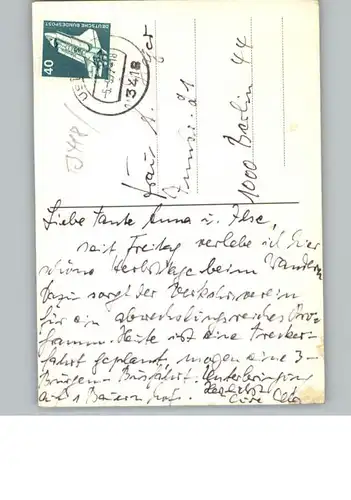 40
DEUTSCHE BUNDESPOST
3418
Frau A.
1000 Berlin 44
Liebe Tante Anna u. Ilse,
seit Freitag verlebe ich hier
schöne Herbsttage beim Wandern
Dazu sorgt der Verkehrsverein
für ein abwechslungsreiches Pro-
gramm. Heute ist eine Trecker-
fahrt geplant, morgen eine 3-
Burgen-Busfahrt. Unterbringung
Herzlichst
auf 1 Bauernhof. Eure